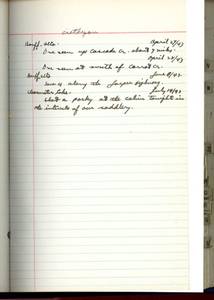 Banff, Alta. April 27/43
One seen up Cascade Cr. about 7 miles.
April 28/43
One seen at mouth of Carrot Cr.
Banff, Alta. June 8/43
Seen along the Jasper highway.
July 18/43
Shot a porky at the cabin tonight in
the interests of our saddlery.